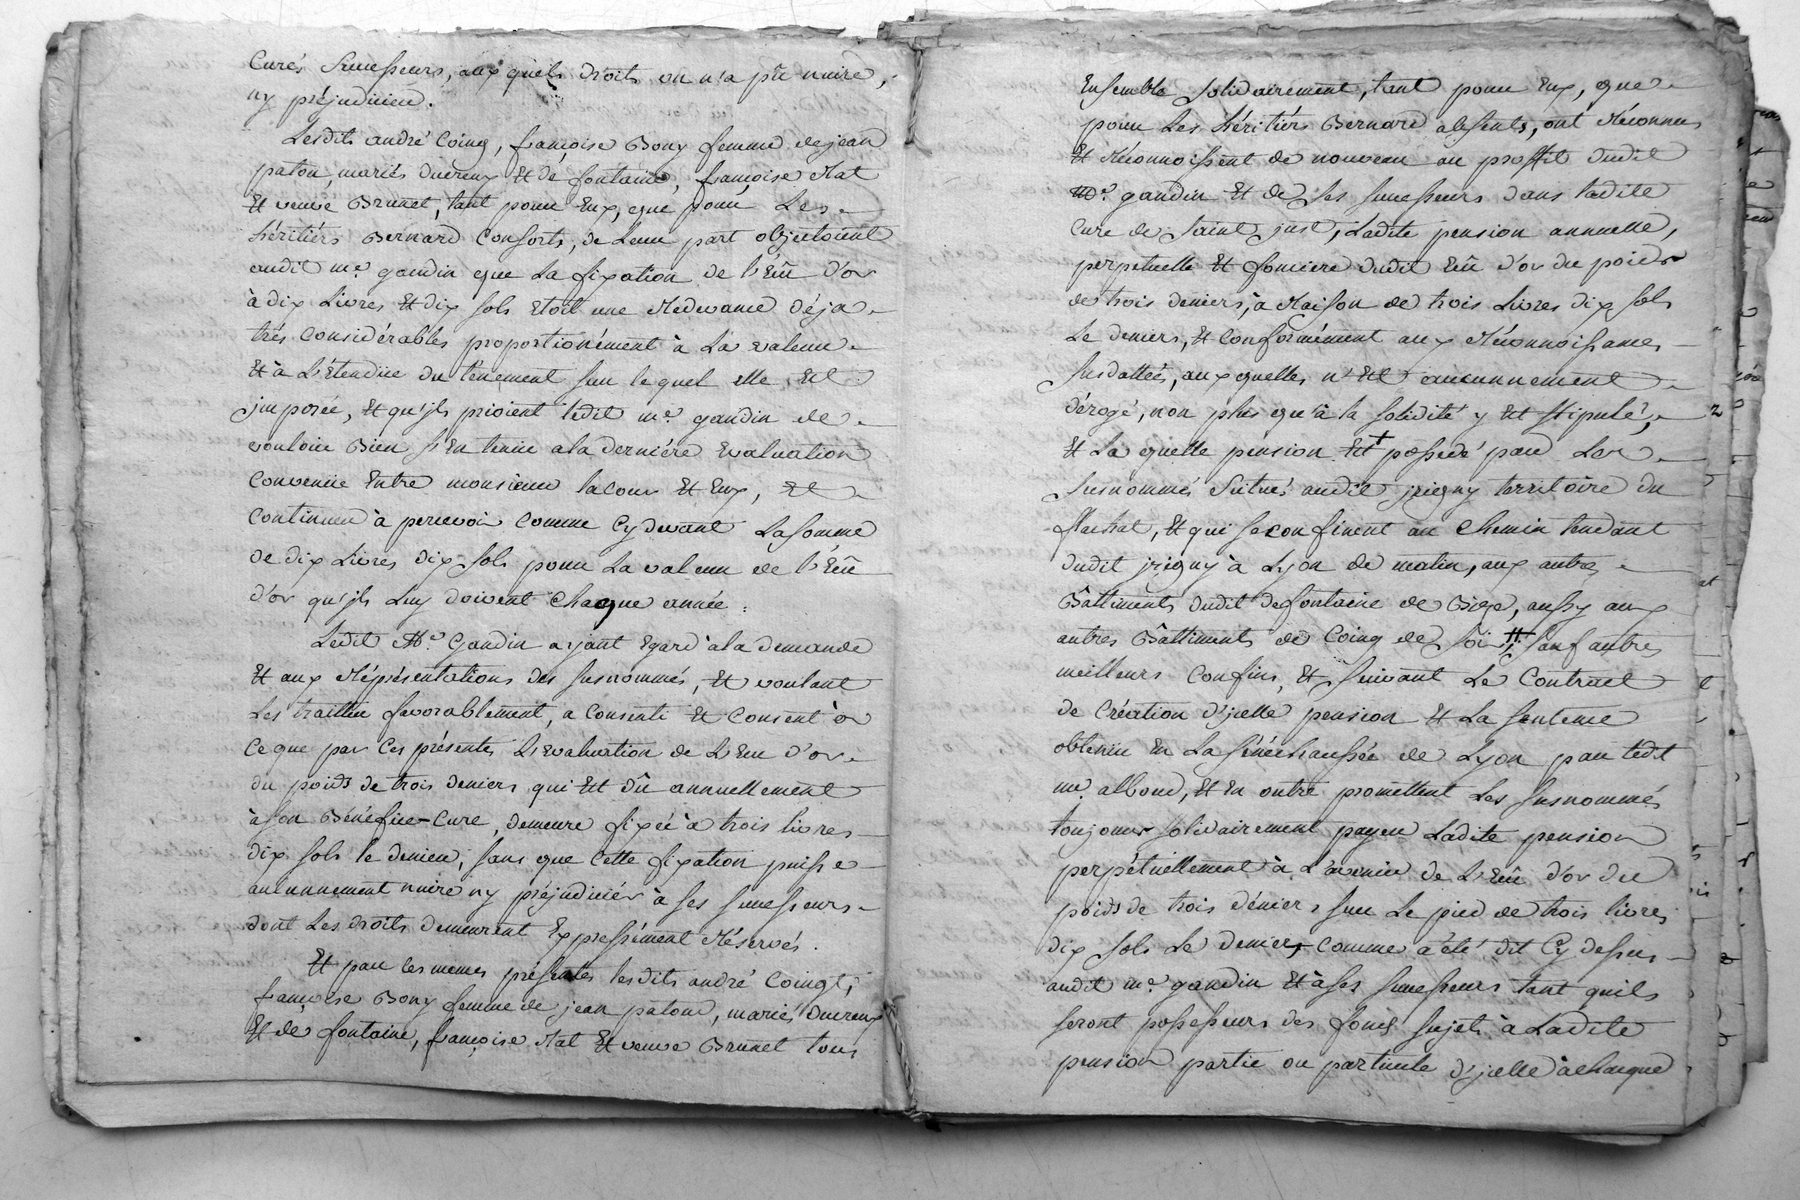 Curés Successeurs, aux quels droits on n'a pû nuire,
ny préjudicier.
Lesdits andré Coing, françoise Bony femme de jean
paton, mariés Ducreux Et de fontaine, françoise Rat
Et veuve Brunet, tant pour Eux, que pour Les
héritiérs Bernard Consorts, de Leur part objectoient
audit me. gaudin que La fixation de l'Ecû d'or
à dix Livres Et dix sols Etoit une Redevance déja
trés considérables proportionément à La valeur
Et à L'Etendüe du tenement sur lequel elle Est
jmposée, Et qu'jls prioient ledit me. gaudin de
vouloir Bien s'En tenir a la derniére Evaluation
Convenüe Entre monsieur lacour Et Eux, Et
continuer à percevoir Comme Cy devant La somme
de dix Livres dix sols pour La valeur de l'Ecû
d'or qu'jls Luy doivent Chaque année.
Ledit Me. Gaudin ayant Egard à la demande
Et aux Répréséntations des susnommés, Et voulant
Les traitter favorablement, a Consenti Et Consent à
Ce que par Ces présentes L'Evaluation de L'Ecu d'or
du poids de trois deniers qui Est dû annuellement
à son Bénéfice-Cure, demeure fixée à trois livres
dix sols le denier, sans que Cette fixation puisse
aucunnement nuire ny préjudiciér à ses successeurs
dont Les droits demeurent Expressément Réservés.
Et par les memes présentes lesdits andré Coingt,
françoise Bony femme de jean paton, mariés Ducreux
Et de fontaine, françoise Rat Et veuve Brunet tous
Ensemble solidairement, tant pour Eux, que
pour Les héritiérs Bernard absents, ont Réconnu
Et Réconnoissent de nouveau au proffit dudit
me. gaudin Et de ses successeurs dans ladite
Cure de Saint just, Ladite pension annuelle,
perpetuelle Et fonciere dudit Ecû d'or du poids
de trois deniers, à Raison de trois Livres dix sols
Le deniers, Et Conformément aux Réconnoissances
susdattées, auxquelles n'Est aucunnement
dérogé, non plus qu'à la solidité y Est stipulé,
Et La quelle pénsion Est possedé par Les
susnommés Situés audit jrigny territoire du
flachat, Et qui se confinent au Chemin tendant
dudit jrigny à Lyon de matin, aux autres
Bâttiments dudit defontaine de Bize, aussy aux
autres Bâttiments de Coing de Soir, sauf autres
meilleurs Confins, Et suivant Le Contract
de Création d'jcelle pension Et La sentence
obtenüe En La Sénéchaussée de Lyon par ledit
me. albour, Et En outre promettent Les susnommés
toujours solidairement payer Ladite pension
perpétuellement à L'avenir de L'Ecû d'or du
poids de trois déniers sur Le pied de trois livres
dix sols Le denier, comme a été dit Cy dessus
audit me. gaudin Et à ses successeurs tant quils
seront possesseurs des fonds sujets à Ladite
pension partie ou particule d'jcelle à chaque